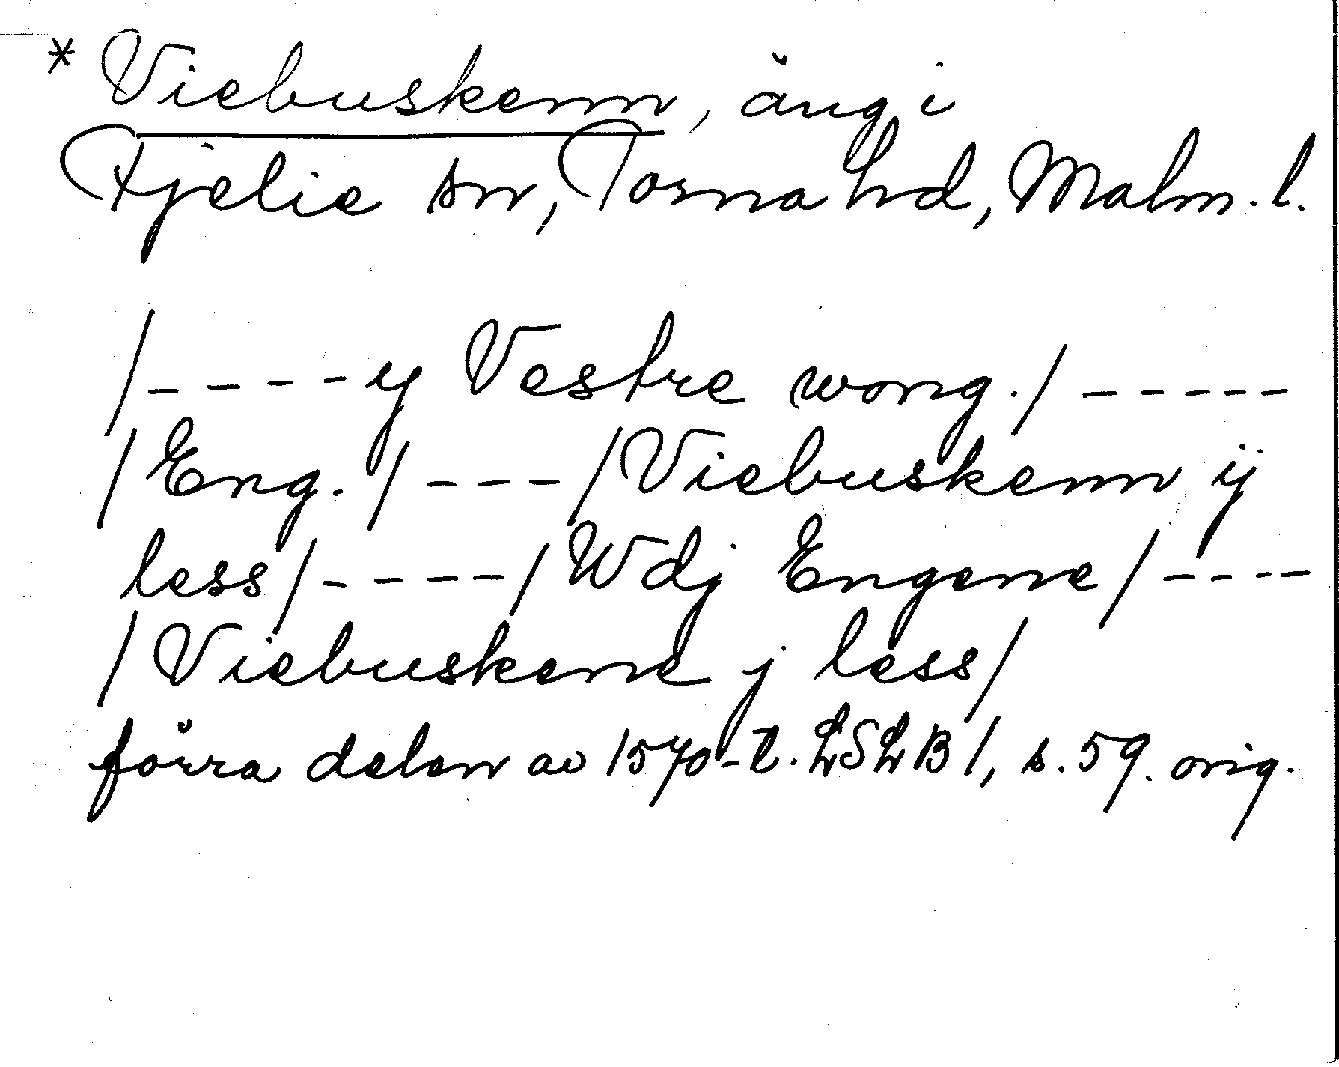 * Viebuskenn, äng i
Fjelie sn, Torna hd, Malm. l.
/ - - - - y Vestre wong. / - - - - -
/ Eng. / - - - / Viebuskenn ij
less / - - - - / Wdj Engene / - - - -
/ Viebuskene j less /
förra delen av 1570-t. LSLB 1, s. 59. orig.